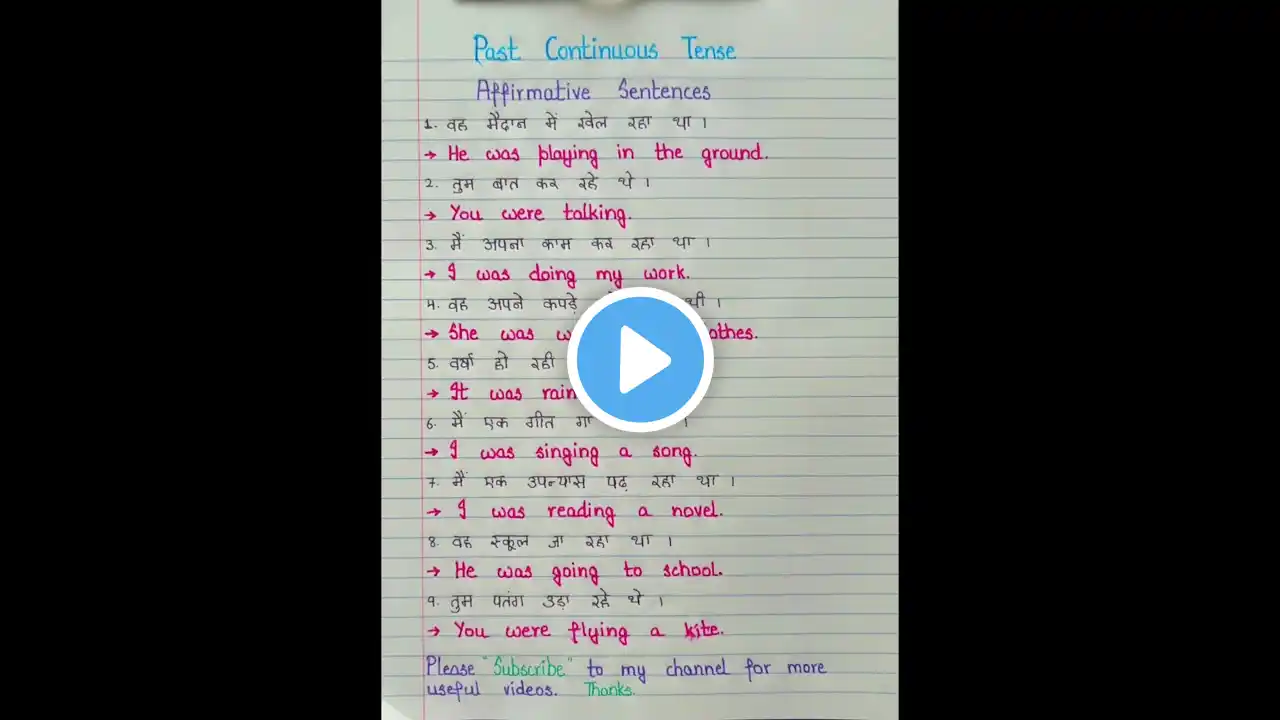 Past Continuous Tense
Affirmative Sentences
1. वह मैदान में खेल रहा था ।
→ He was playing in the ground.
2. तुम बात कर रहे थे ।
→ You were talking.
3. मैं अपना काम कर रहा था ।
→ I was doing my work.
4. वह अपने कपड़े थी ।
→ She was
5. वर्षा हो रही
→ It was
6. मैं एक गीत गा ।
→ I was singing a song.
7. मैं एक उपन्यास पढ़ रहा था ।
→ I was reading a novel.
8. वह स्कूल जा रहा था ।
→ He was going to school.
9. तुम पतंग उड़ा रहे थे ।
→ You were flying a kite.
Please "Subscribe" to my channel for more
useful videos. Thanks.